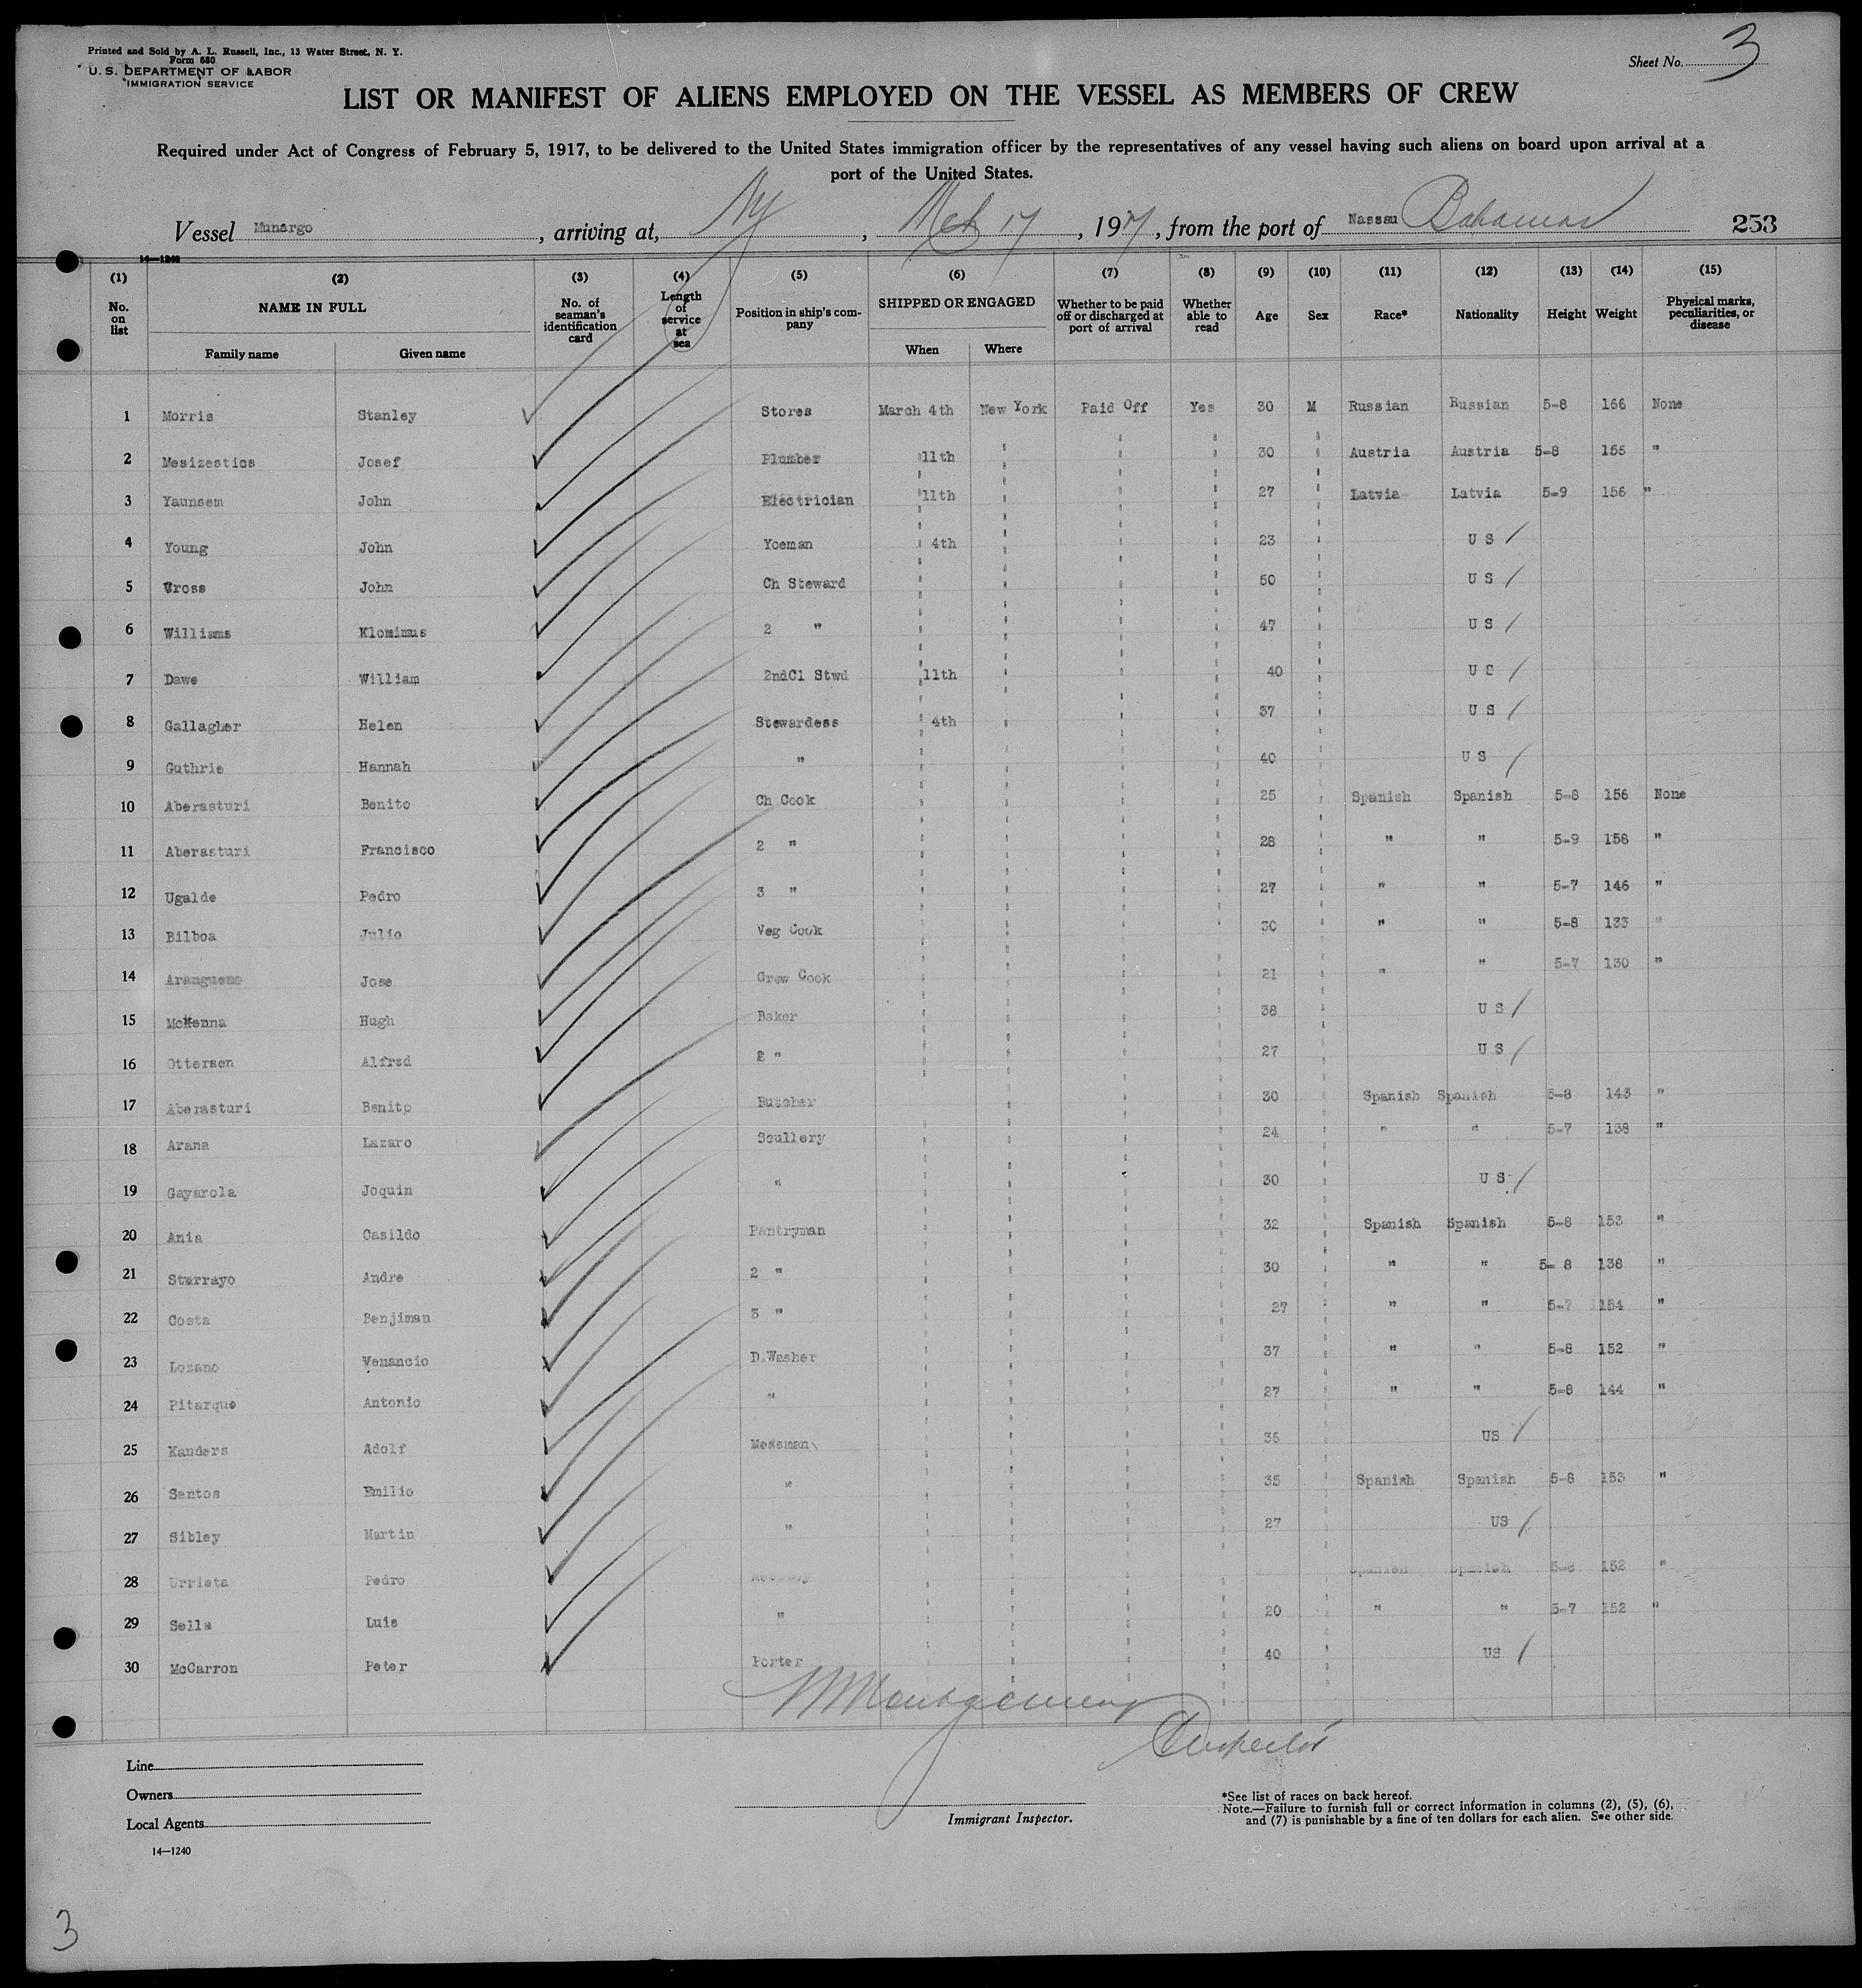 Printed and Sold by A. L. Russell, Inc., 13 Water Street, N. Y.
Form 680
U. S. DEPARTMENT OF LABOR
IMMIGRATION SERVICE
Sheet No. 3
LIST OR MANIFEST OF ALIENS EMPLOYED ON THE VESSEL AS MEMBERS OF CREW
Required under Act of Congress of February 5, 1917, to be delivered to the United States immigration officer by the representatives of any vessel having such aliens on board upon arrival at a
port of the United States.
Vessel Munargo, arriving at, NY, Mch 17, 1927, from the port of Nassau Bahamas 253
14—1240
(1) (2) (3) (4) (5) (6) (7) (8) (9) (10) (11) (12) (13) (14) (15)
No. on list NAME IN FULL Family name Given name No. of seaman's identification card Length of service at sea Position in ship's company SHIPPED OR ENGAGED When Where Whether to be paid off or discharged at port of arrival Whether able to read Age Sex Race* Nationality Height Weight Physical marks, peculiarities, or disease
1 Morris Stanley Stores March 4th New York Paid Off Yes 30 M Russian Russian 5-8 166 None
2 Mesizestics Josef Plumber " 11th " " " 30 " Austria Austria 5-8 156 "
3 Yaunsem John Electrician " 11th " " " 27 " Latvia Latvia 5-9 156 "
4 Young John Yoeman " 4th " " " 23 " U S /
5 Gross John Ch Steward " " " " 50 " U S /
6 Williams Klomimus 2 " " " " " 47 " U S /
7 Dawe William 2ndCl Stwd " 11th " " " 40 " U S /
8 Gallagher Helen Stewardess " 4th " " " 37 " U S /
9 Guthrie Hannah " " " " " 40 " U S /
10 Aberasturi Benito Ch Cook " " " " 25 " Spanish Spanish 5-8 156 None
11 Aberasturi Francisco 2 " " " " " 28 " " " 5-9 158 "
12 Ugalde Pedro 3 " " " " " 27 " " " 5-7 146 "
13 Bilboa Julio Veg Cook " " " " 30 " " " 5-8 135 "
14 Aranguene Jose Crew Cook " " " " 21 " " " 5-7 130 "
15 McKenna Hugh Baker " " " " 38 " U S /
16 Ottersen Alfred 2 " " " " " 27 " U S /
17 Aberasturi Benito Butcher " " " " 30 " Spanish Spanish 5-8 143 "
18 Arana Lazaro Scullery " " " " 24 " " " 5-7 138 "
19 Gayarola Joquin " " " " " 30 " U S /
20 Ania Casildo Pantryman " " " " 32 " Spanish Spanish 5-8 153 "
21 Starrayo Andre 2 " " " " " 30 " " " 5- 8 138 "
22 Costa Benjiman 3 " " " " " 27 " " " 5-7 154 "
23 Lozano Venancio D.Washer " " " " 37 " " " 5-8 152 "
24 Pitarque Antonio " " " " " 27 " " " 5-8 144 "
25 Kanders Adolf Messman " " " " 36 " US /
26 Santos Emilio " " " " " 35 " Spanish Spanish 5-8 153 "
27 Sibley Martin " " " " " 27 " US /
28 Urrieta Pedro " " " " " Spanish Spanish 5-8 152 "
29 Sella Luis " " " " " 20 " " " 5-7 152 "
30 McCarron Peter Porter " " " " 40 " US /
Montgomery
Inspector
Line
Owners
Local Agents
Immigrant Inspector.
*See list of races on back hereof.
Note.—Failure to furnish full or correct information in columns (2), (5), (6),
and (7) is punishable by a fine of ten dollars for each alien. See other side.
14—1240
3